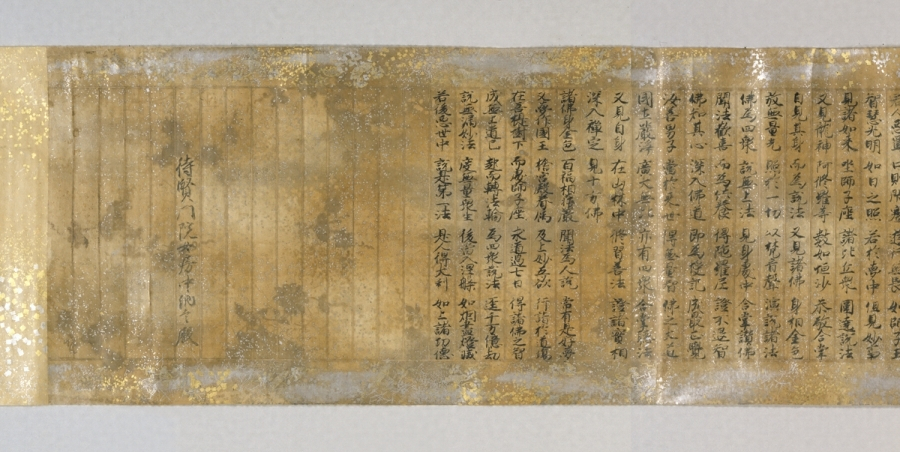 智慧光明 如日之照 若於夢中 但見妙事
見諸如來 坐師子座 諸比丘衆 圍遶說法
又見龍神 阿修羅等 數如恒沙 恭敬合掌
自見其身 而為說法 又見諸佛 身相金色
放無量光 照於一切 以梵音聲 演說諸法
佛為四衆 說無上法 見身處中 合掌讚佛
聞法歡喜 而為供養 得陀羅尼 證不退智
佛知其心 深入佛道 即為授記 成最正覺
汝善男子 當於來世 得無量智 佛之大道
國土嚴淨 廣大無比 亦有四衆 合掌聽法
又見自身 在山林中 修習善法 證諸實相
深入禪定 見十方佛
諸佛身金色 百福相莊嚴 聞法為人說 常有是好夢
又夢作國王 捨宮殿眷屬 及上妙五欲 行詣於道場
在菩提樹下 而處師子座 求道過七日 得諸佛之智
成無上道已 起而轉法輪 為四衆說法 逕千万億劫
說無漏妙法 度無量衆生 後當入涅槃 如烟盡燈滅
若後惡世中 說是第一法 是人得大利 如上諸功德
待賢門院女房中納言殿